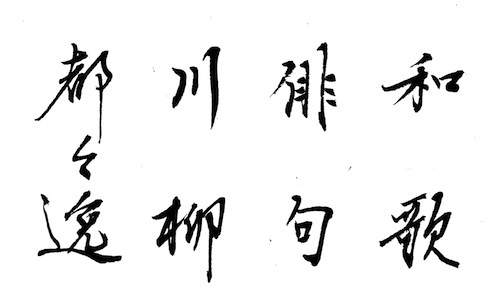 和歌
俳句
川柳
都々逸